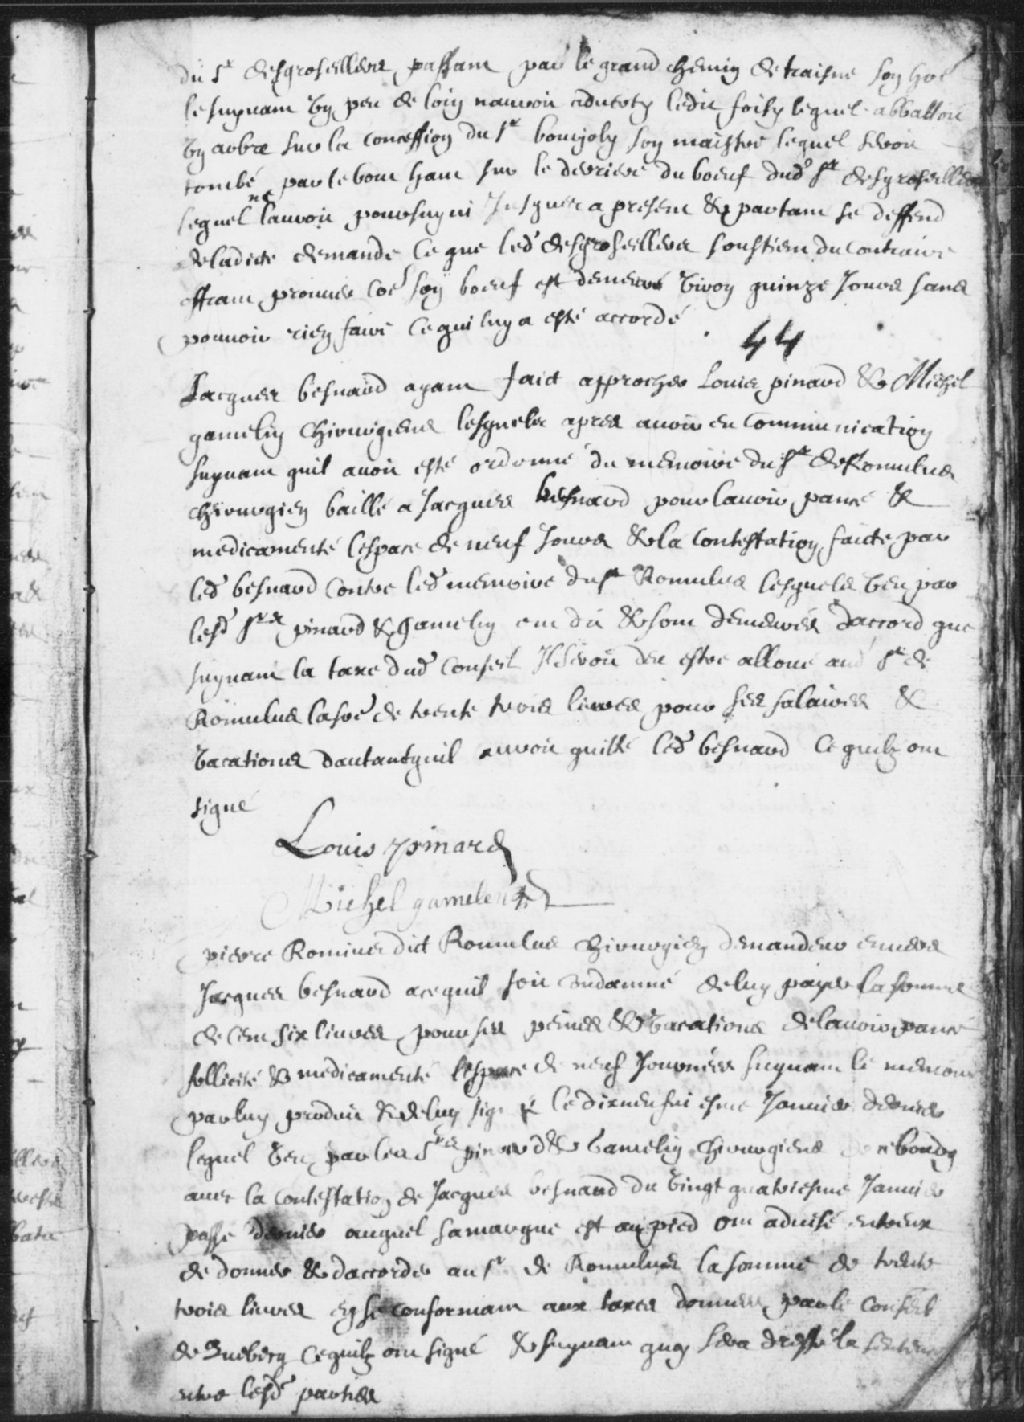 du Sr desgroseillers passant par le grand chemin de traisne son
lesuyuant Un peu de loin nauroit ledit foisy lequel abbattoit
Un arbre sur la Concession du Sr bonjoly son maistre lequel seroit
tombé par le bout sur le derriere du boeuf dud Sr desgroseilliers
lequel lauroit poursuyui Jusques a present & partant se deffend
deladite demande Ce que led desgroseilliers soustient du Contraire
offrant prouuer Coe son boeuf est demeuré Viron quinze Jours sans
pouuoir rien faire Ce qui luy a esté accordé
44
Jacques besnard ayant faict approcher Louis pinard & Michel
gamelin Chirurgiens lesquels apres auoir eu Communication
suyuant quil auoit esté ordonné du memoire du Sr de Romulus
Chirurgien baillé a Jacques besnard pour lauoir pansé &
medicamenté lespace de neuf Jours & la Contestation faicte par
led besnard Contre led memoire du Sr Romulus lesquels Veu par
lesd Srs pinard & Gamelin ont dit & sont demeurés daccord que
suyuant la taxe dud Conseil Il seroit deu estre alloué aud Sr de
Romulus la soe de trente trois liures pour ses salaires &
Vacations dautant quil auroit led besnard Ce quilz ont
signé
Louis pinard
Michel gamelin
pierre Rominer dict Romulus Chirurgien demandeur enuers
Jacques besnard a ce quil soit Condamné de luy payer la somme
de Cent six liures pour ses peines & Vacations de lauoir pansé
sollicité & medicamenté lespace de neuf Journées suyuant le memoire
par luy produit & de luy signé le dixneufuiesme Januier dernier
lequel Veu par les Srs pinard & Gamelin Chirurgiens
auec la Contestation de Jacques besnard du Vingt quatriesme Januier
passé dernier auquel sa marque est au pied ont aduisé entreux
de donner & daccorder au Sr de Romulus la somme de trente
trois liures en se conformant aux taxes donnees par le Conseil
de Quebecq Ce quilz ont signé & suyuant quoy sera dressé la sentence
entre lesd parties